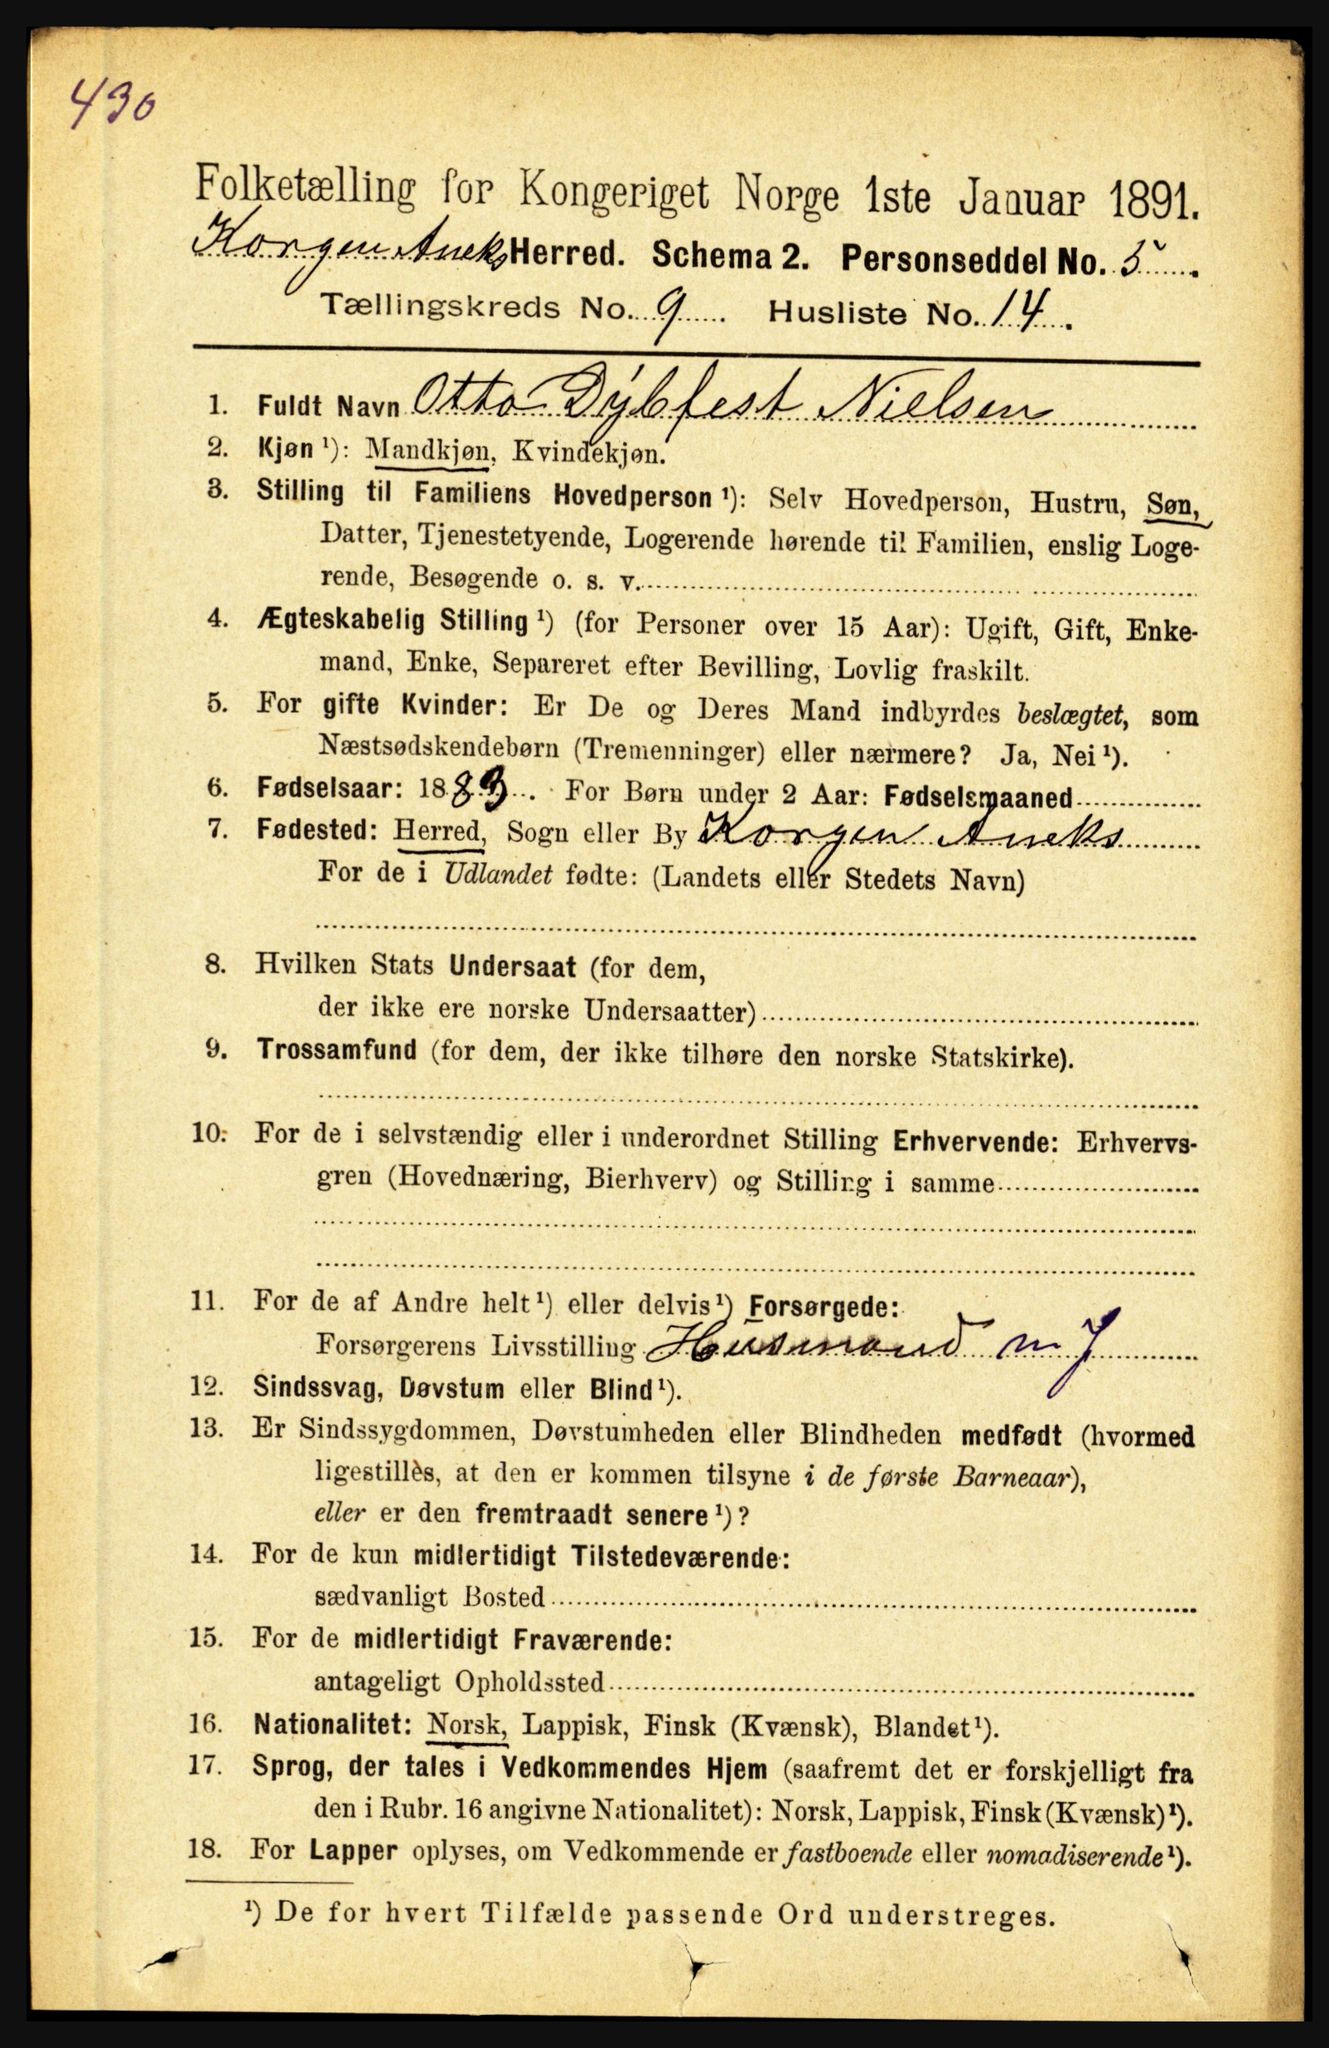 430
Folketælling for Kongeriget Norge 1ste Januar 1891.
Korgen Aneks Herred. Schema 2. Personseddel No. 5.
Tællingskreds No. 9. Husliste No. 14.
1. Fuldt Navn Otto Dybfest Nielsen
2. Kjøn ¹): Mandkjøn, Kvindekjøn.
3. Stilling til Familiens Hovedperson ¹): Selv Hovedperson, Hustru, Søn,
Datter, Tjenestetyende, Logerende hørende til Familien, enslig Loge-
rende, Besøgende o. s. v.
4. Ægteskabelig Stilling ¹) (for Personer over 15 Aar): Ugift, Gift, Enke-
mand, Enke, Separeret efter Bevilling, Lovlig fraskilt.
5. For gifte Kvinder: Er De og Deres Mand indbyrdes beslægtet, som
Næstsødskendebørn (Tremenninger) eller nærmere? Ja, Nei ¹).
6. Fødselsaar: 1883. For Børn under 2 Aar: Fødselsmaaned
7. Fødested: Herred, Sogn eller By Korgen Aneks
For de i Udlandet fødte: (Landets eller Stedets Navn)
8. Hvilken Stats Undersaat (for dem,
der ikke ere norske Undersaatter)
9. Trossamfund (for dem, der ikke tilhøre den norske Statskirke).
10. For de i selvstændig eller i underordnet Stilling Erhvervende: Erhvervs-
gren (Hovednæring, Bierhverv) og Stilling i samme
11. For de af Andre helt ¹) eller delvis ¹) Forsørgede:
Forsørgerens Livsstilling Husmand m J
12. Sindssvag, Døvstum eller Blind ¹).
13. Er Sindssygdommen, Døvstumheden eller Blindheden medfødt (hvormed
ligestilles, at den er kommen tilsyne i de første Barneaar),
eller er den fremtraadt senere ¹)?
14. For de kun midlertidigt Tilstedeværende:
sædvanligt Bosted
15. For de midlertidigt Fraværende:
antageligt Opholdssted
16. Nationalitet: Norsk, Lappisk, Finsk (Kvænsk), Blandet ¹).
17. Sprog, der tales i Vedkommendes Hjem (saafremt det er forskjelligt fra
den i Rubr. 16 angivne Nationalitet): Norsk, Lappisk, Finsk (Kvænsk) ¹).
18. For Lapper oplyses, om Vedkommende er fastboende eller nomadiserende ¹).
¹) De for hvert Tilfælde passende Ord understreges.